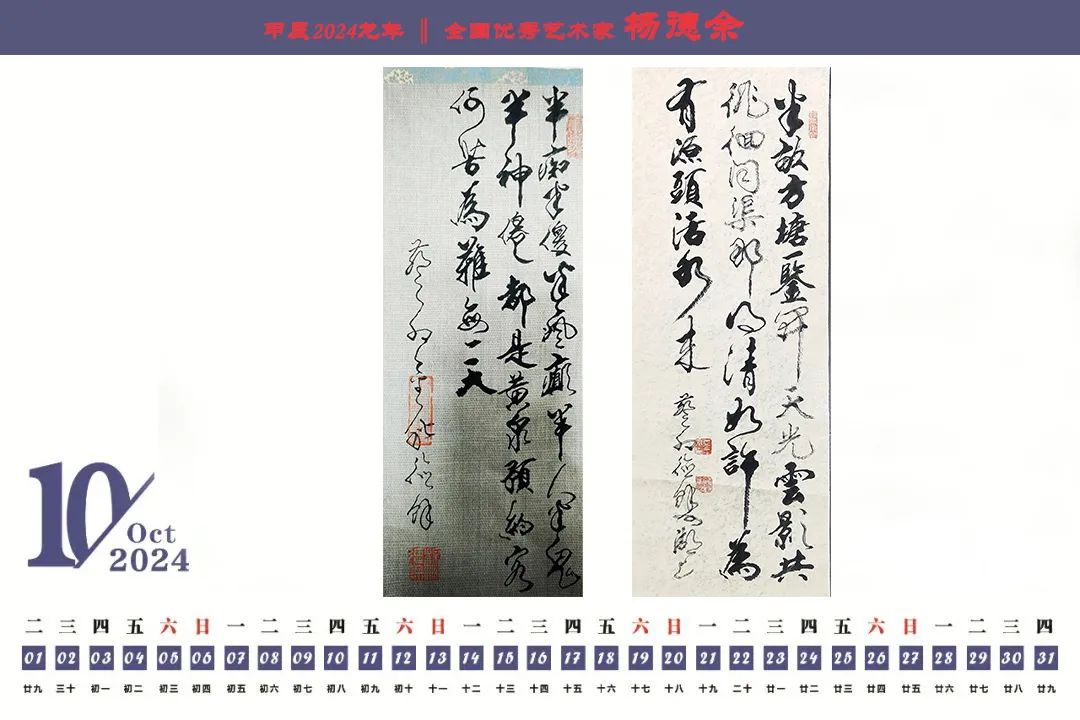 甲辰2024龙年 ‖ 全国优秀艺术家 杨德余
半痴半傻半瘋癲半人半鬼
半神僊都是黄泉預約客
何苦為難每一天
半畝方塘一鑒開天光雲影共
徘徊問渠那得清如許為
有源頭活水来
10
Oct
2024
二 三 四 五 六 日 一 二 三 四 五 六 日 一 二 三 四 五 六 日 一 二 三 四 五 六 日 一 二 三 四
01 02 03 04 05 06 07 08 09 10 11 12 13 14 15 16 17 18 19 20 21 22 23 24 25 26 27 28 29 30 31
廿九 三十 初一 初二 初三 初四 初五 初六 初七 初八 初九 初十 十一 十二 十三 十四 十五 十六 十七 十八 十九 二十 廿一 廿二 廿三 廿四 廿五 廿六 廿七 廿八 廿九